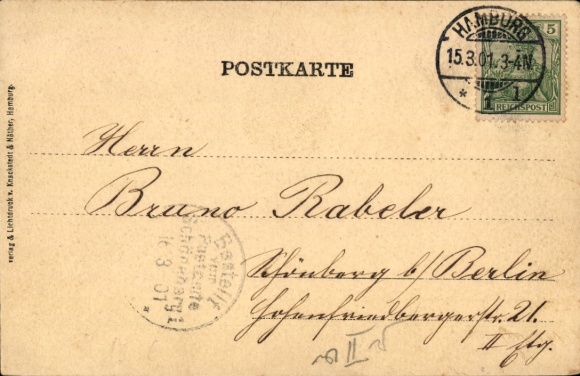 HAMBURG
15.3.01.3-4N.
* 1 1
5
REICHSPOST
POSTKARTE
Herrn
Bruno Rabeler
Schönberg b/Berlin
Hohenfriedbergerstr. 21.
II Etg.
Bestellt
vom
Postamte
Schöneberg 1
16 3 01
II
Verlag & Lichtdruck v. Knackstedt & Näther, Hamburg.